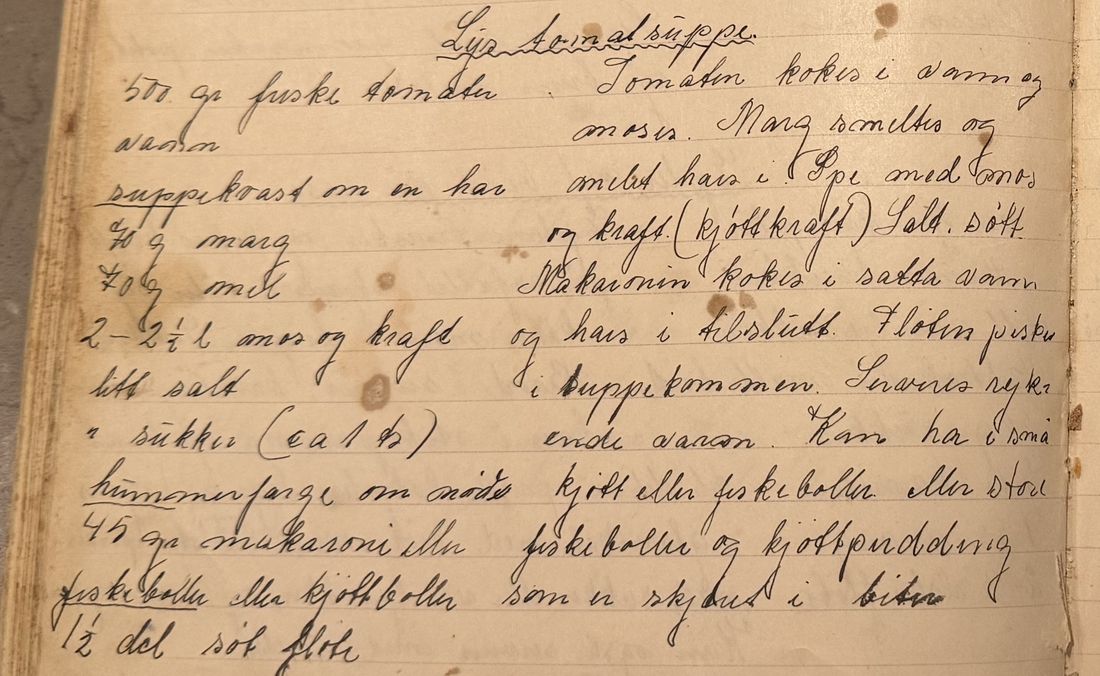 Lys tomatsuppe.
500 gr friske tomater
vann
suppekvast om en har
70 g marg
70 g mel
2 - 2 1/2 l mos og kraft
litt salt
" sukker (ca 1 ts)
hummerfarge om nödv
45 gr makaroni eller
fiskeboller eller kjöttboller
1 1/2 del söt flöte
Tomaten kokes i vann og
moses. Marg smeltes og
melet haes i. Spe med mos
og kraft. (kjöttkraft) Salt. sött.
Makaronin kokes i salta vann
og haes i tilslutt. Flöten piskes
i suppekommen. Serveres ryk-
ende varm. Kan ha i små
kjött eller fiskeboller. eller store
fiskeboller og kjöttpudding
som er skjaret i biter